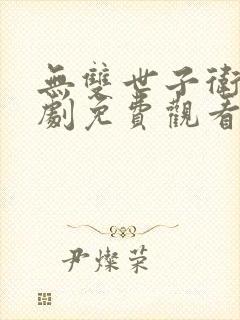 無雙世子衛
劇免費觀看
尹燦榮